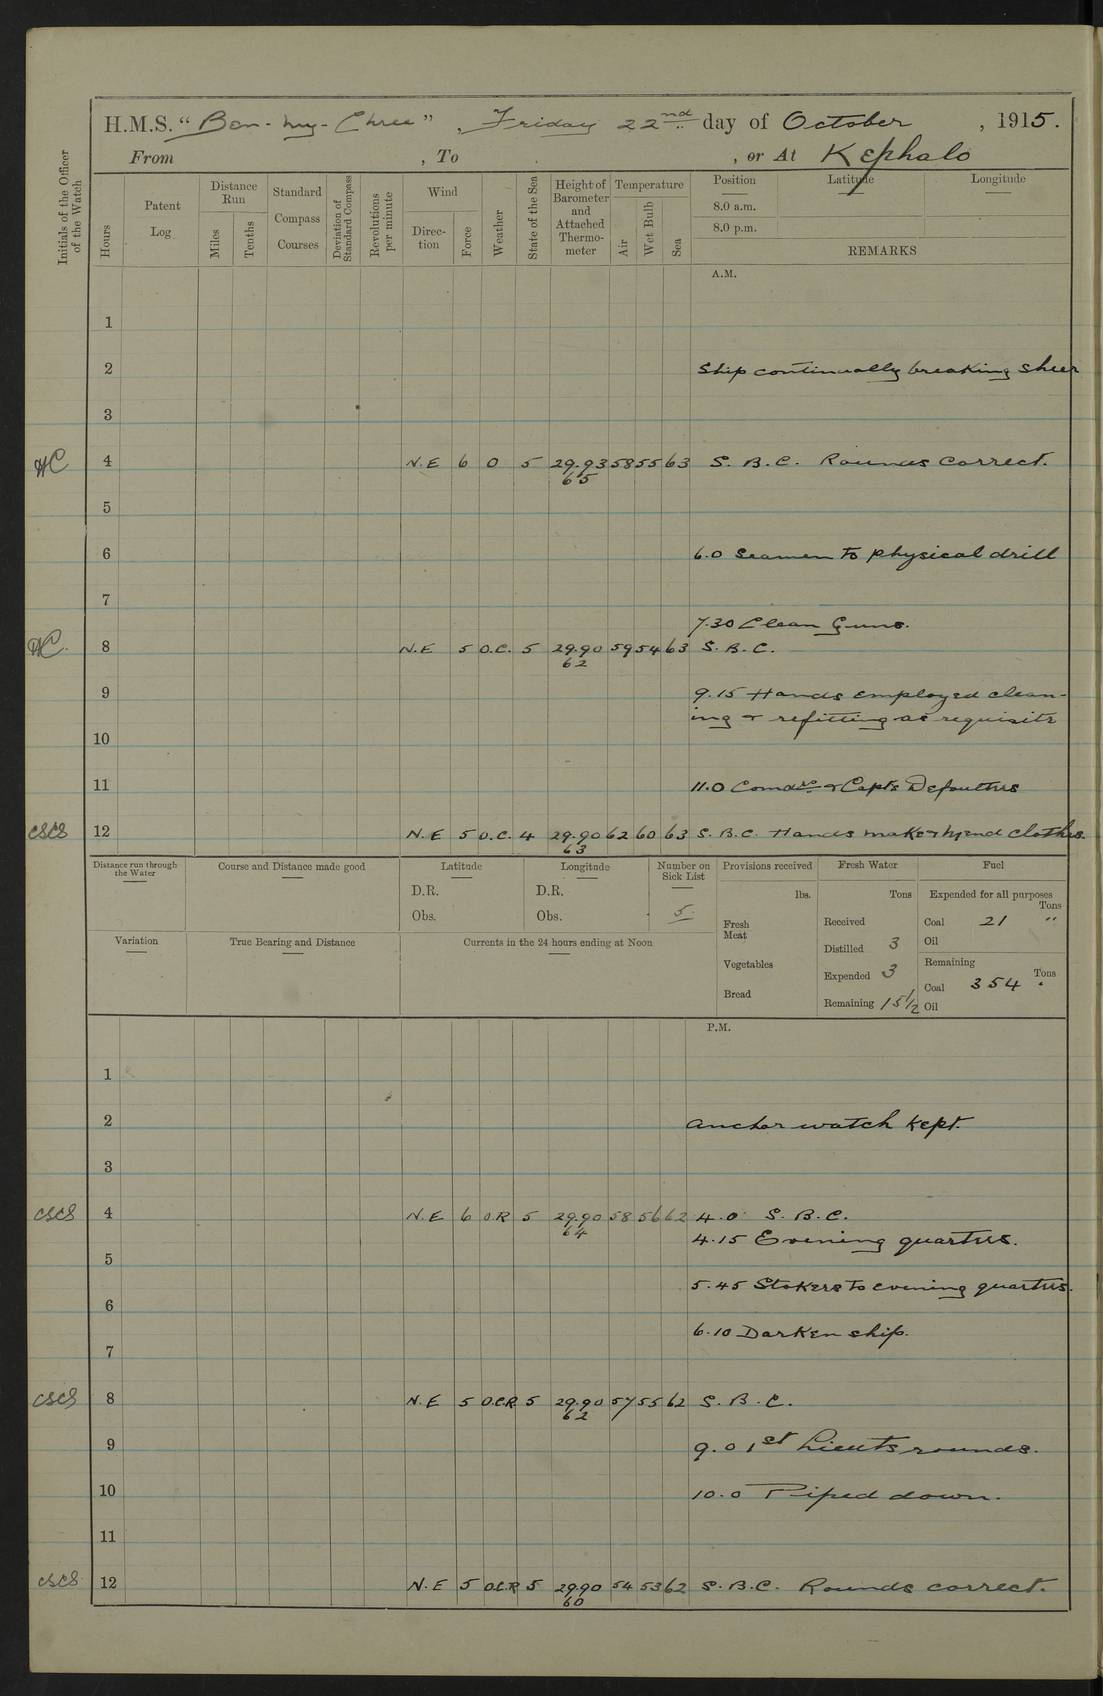 H.M.S. “ Ben-my-Chree ” , Friday 22nd day of October , 1915.
From , To , or At Kephalo
Initials of the Officer of the Watch
Hours
Patent Log
Distance Run
Miles
Tenths
Standard Compass Courses
Deviation of Standard Compass
Revolutions per minute
Wind
Direction
Force
Weather
State of the Sea
Height of Barometer and Attached Thermometer
Temperature
Air
Wet Bulb
Sea
Position Latitude Longitude
8.0 a.m.
8.0 p.m.
REMARKS
A.M.
1
2 Ship continually breaking sheer
3
HC 4 N.E 6 O 5 29.93 58 55 63 S. B. C. Rounds Correct.
65
5
6 6.0 Seamen to physical drill
7
7.30 Clean Guns.
HC. 8 N.E 5 O.C. 5 29.90 59 54 63 S. B. C.
62
9 9.15 Hands employed clean-
ing & refitting as requisite
10
11 11.0 Comdrs & Capts Defaulters
CSCS 12 N.E 5 O.C. 4 29.90 62 60 63 S. B. C. Hands make & mend clothes.
63
Distance run through the Water
Course and Distance made good
Latitude
D.R.
Obs.
Longitude
D.R.
Obs.
Number on Sick List
5
Variation
True Bearing and Distance
Currents in the 24 hours ending at Noon
Provisions received
lbs.
Fresh Meat
Vegetables
Bread
Fresh Water
Tons
Received
Distilled 3
Expended 3
Remaining 15 1/2
Fuel
Expended for all purposes
Tons
Coal 21 "
Oil
Remaining
Tons
Coal 354
Oil
P.M.
1
2 Anchor watch kept.
3
CSCS 4 N.E 6 O.R 5 29.90 58 56 62 4.0 S. B. C.
64
4.15 Evening quarters.
5
5.45 Stokers to evening quarters.
6
6.10 Darken ship.
7
CSCS 8 N.E 5 O.C.R. 5 29.90 57 55 62 S. B. C.
62
9 9.0 1st Lieuts rounds.
10 10.0 Piped down.
11
CSCS 12 N.E 5 O.C.R 5 29.90 54 53 62 S. B. C. Rounds correct.
60